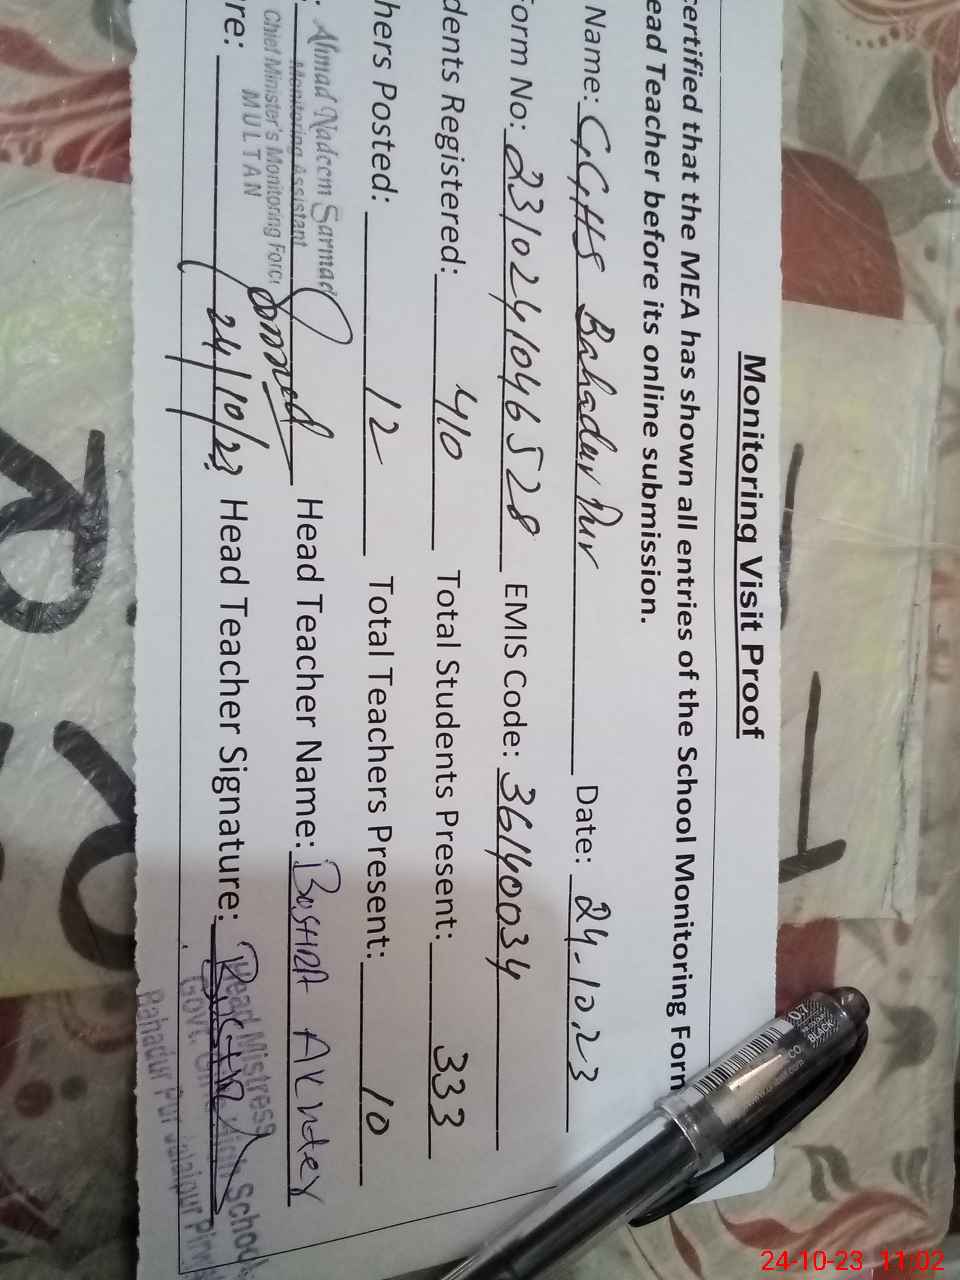 Monitoring Visit Proof
certified that the MEA has shown all entries of the School Monitoring Form
ead Teacher before its online submission.
Name: GGHS Bahadur Pur Date: 24-10.23
orm No: 2310241046528 EMIS Code: 36140034
dents Registered: 410 Total Students Present: 333
hers Posted: 12 Total Teachers Present: 10
: Ahmad Nadeem Sarmad Head Teacher Name: BUSHRA AKHTER
Monitoring Assistant
Chief Minister's Monitoring Force
MULTAN
re: 24/10/23 Head Teacher Signature:
Head Mistress
Govt. Girls High School
Bahadur Pur Jalalpur Pirw
0.7
BLACK
24-10-23 11:02